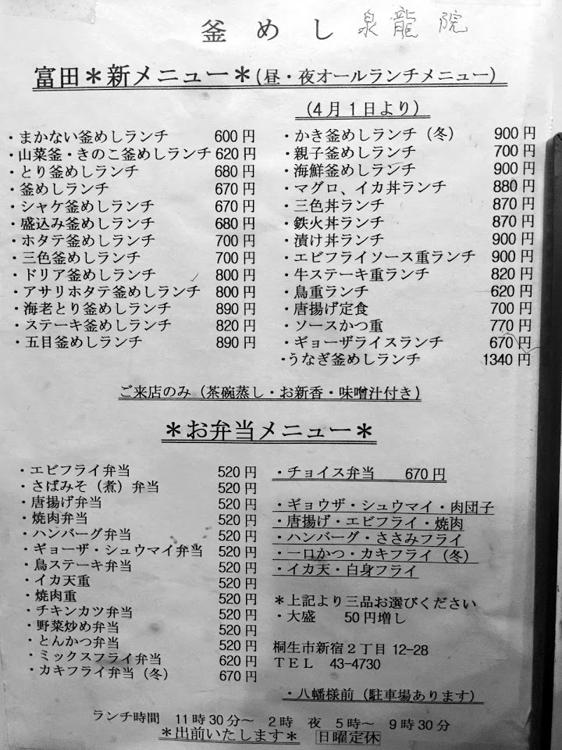 釜めし 泉龍院
富田＊新メニュー＊(昼・夜オールランチメニュー)
(4月1日より)
・まかない釜めしランチ 600円
・山菜釜・きのこ釜めしランチ 620円
・とり釜めしランチ 680円
・釜めしランチ 670円
・シャケ釜めしランチ 670円
・盛込み釜めしランチ 680円
・ホタテ釜めしランチ 700円
・三色釜めしランチ 700円
・ドリア釜めしランチ 800円
・アサリホタテ釜めしランチ 800円
・海老とり釜めしランチ 890円
・ステーキ釜めしランチ 820円
・五目釜めしランチ 890円
・かき釜めしランチ（冬） 900円
・親子釜めしランチ 700円
・海鮮釜めしランチ 900円
・マグロ、イカ丼ランチ 880円
・三色丼ランチ 870円
・鉄火丼ランチ 870円
・漬け丼ランチ 900円
・エビフライソース重ランチ 900円
・牛ステーキ重ランチ 820円
・鳥重ランチ 620円
・唐揚げ定食 700円
・ソースかつ重 770円
・ギョーザライスランチ 670円
・うなぎ釜めしランチ 1340円
ご来店のみ（茶碗蒸し・お新香・味噌汁付き）
＊お弁当メニュー＊
・エビフライ弁当 520円
・さばみそ（煮）弁当 520円
・唐揚げ弁当 520円
・焼肉弁当 520円
・ハンバーグ弁当 520円
・ギョーザ・シュウマイ弁当 520円
・鳥ステーキ弁当 520円
・イカ天重 520円
・焼肉重 520円
・チキンカツ弁当 520円
・野菜炒め弁当 520円
・とんかつ弁当 520円
・ミックスフライ弁当 620円
・カキフライ弁当（冬） 670円
・チョイス弁当 670円
・ギョウザ・シュウマイ・肉団子
・唐揚げ・エビフライ・焼肉
・ハンバーグ・ささみフライ
・一口かつ・カキフライ（冬）
・イカ天・白身フライ
＊上記より三品お選びください
・大盛 50円増し
桐生市新宿２丁目12-28
ＴＥＬ 43-4730
・八幡様前（駐車場あります）
ランチ時間 11時30分～2時 夜 5時～9時30分
＊出前いたします＊ 日曜定休